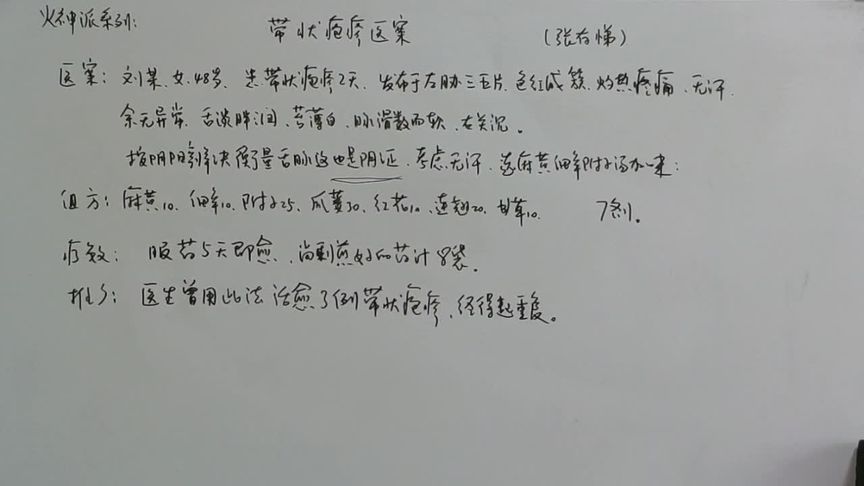 火神派系列: 带状疱疹医案 (张存悌)
医案: 刘某、女、48岁、患带状疱疹2天、发布于左胁三五片、色红成簇、灼热疼痛、无汗、
余无异常、舌淡胖润、苔薄白、脉滑数而软、右关沉。
按阴阳辨诀衡量舌脉这也是阴证、考虑无汗、选麻黄细辛附子汤加味:
组方: 麻黄10、细辛10、附子25、瓜蒌30、红花10、连翘20、甘草10、 7剂。
疗效: 服药5天即愈、尚剩煎好的药汁8袋。
推广: 医生曾用此法治愈了例带状疱疹、经得起重复。